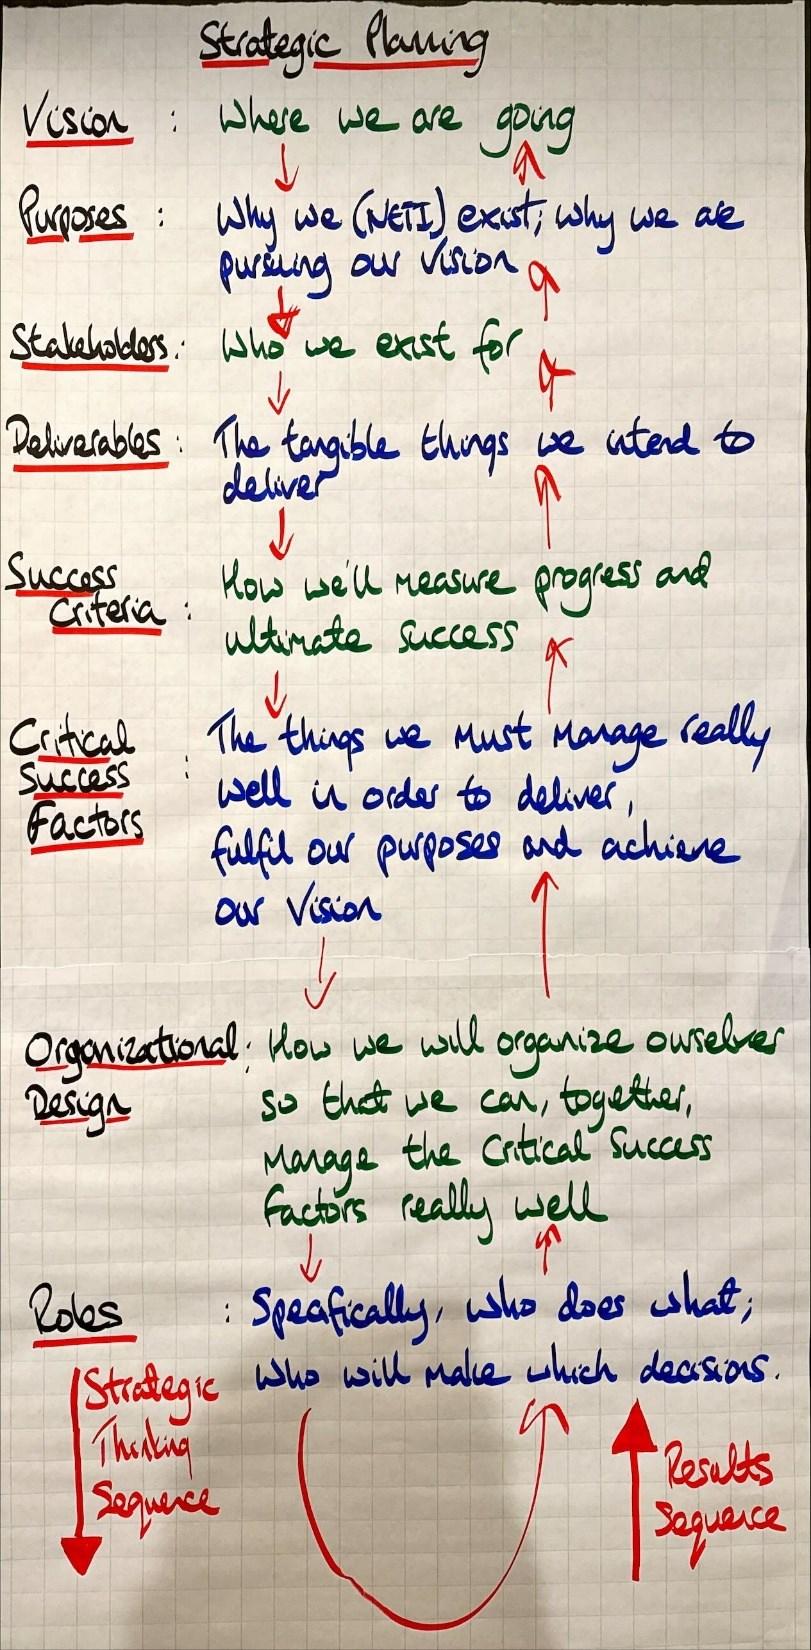 Strategic Planning
Vision : Where we are going
Purposes : Why we (NETI) exist; why we are
pursuing our vision
Stakeholders : Who we exist for
Deliverables : The tangible things we intend to
deliver
Success
Criteria : How we'll measure progress and
ultimate success
Critical
Success
Factors : The things we must manage really
well in order to deliver,
fulfil our purposes and achieve
our vision
Organizational
Design : How we will organize ourselves
so that we can, together,
manage the Critical Success
Factors really well
Roles : Specifically, who does what;
who will make which decisions.
Strategic
Thinking
Sequence
Results
Sequence